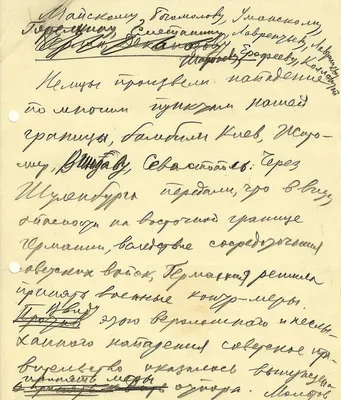 Майскому, Богомолову, Уманскому,
Горелкину, Сметанину, Лаврентьеву, Лаврищеву
Шаронову, Ерофееву, Коллонтай
Немцы произвели нападение
по многим пунктам нашей
границы, бомбили Киев, Жито-
мир, Севастополь. Через
Шуленбурга передали, что в виду
опасности на восточной границе
Германии, вследствие сосредоточения
советских войск, Германия решила
принять военные контр-меры.
В виду
этого вероломного и неслы-
ханного нападения советское пра-
вительство оказалось вынуждено
принять меры
отпора. Молотов